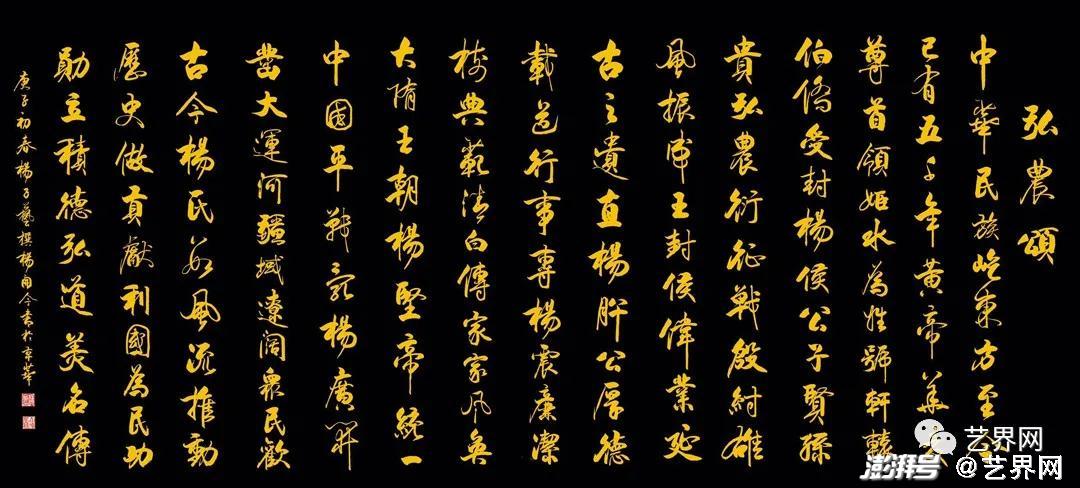 弘農頌
中華民族屹東方至今
已有五千年黃帝華人
尊首領姬水為姓號軒轅
伯僑受封楊侯公子賢孫
貴弘農衍征戰殷紂雄
風振王封侯偉業延
古之遺直楊肸公厚德
載道行事專楊震廉潔
楷典範清白傳家家風奐
大隋王朝楊堅帝統一
中國平戰亂楊廣開
鑿大運河疆域遼闊眾民歡
古今楊氏數風流推動
歷史做貢獻利國為民功
勛立積德弘道美名傳
庚子初春楊子藝撰楊用今書於京華
艺界网
澎湃号 @艺界网